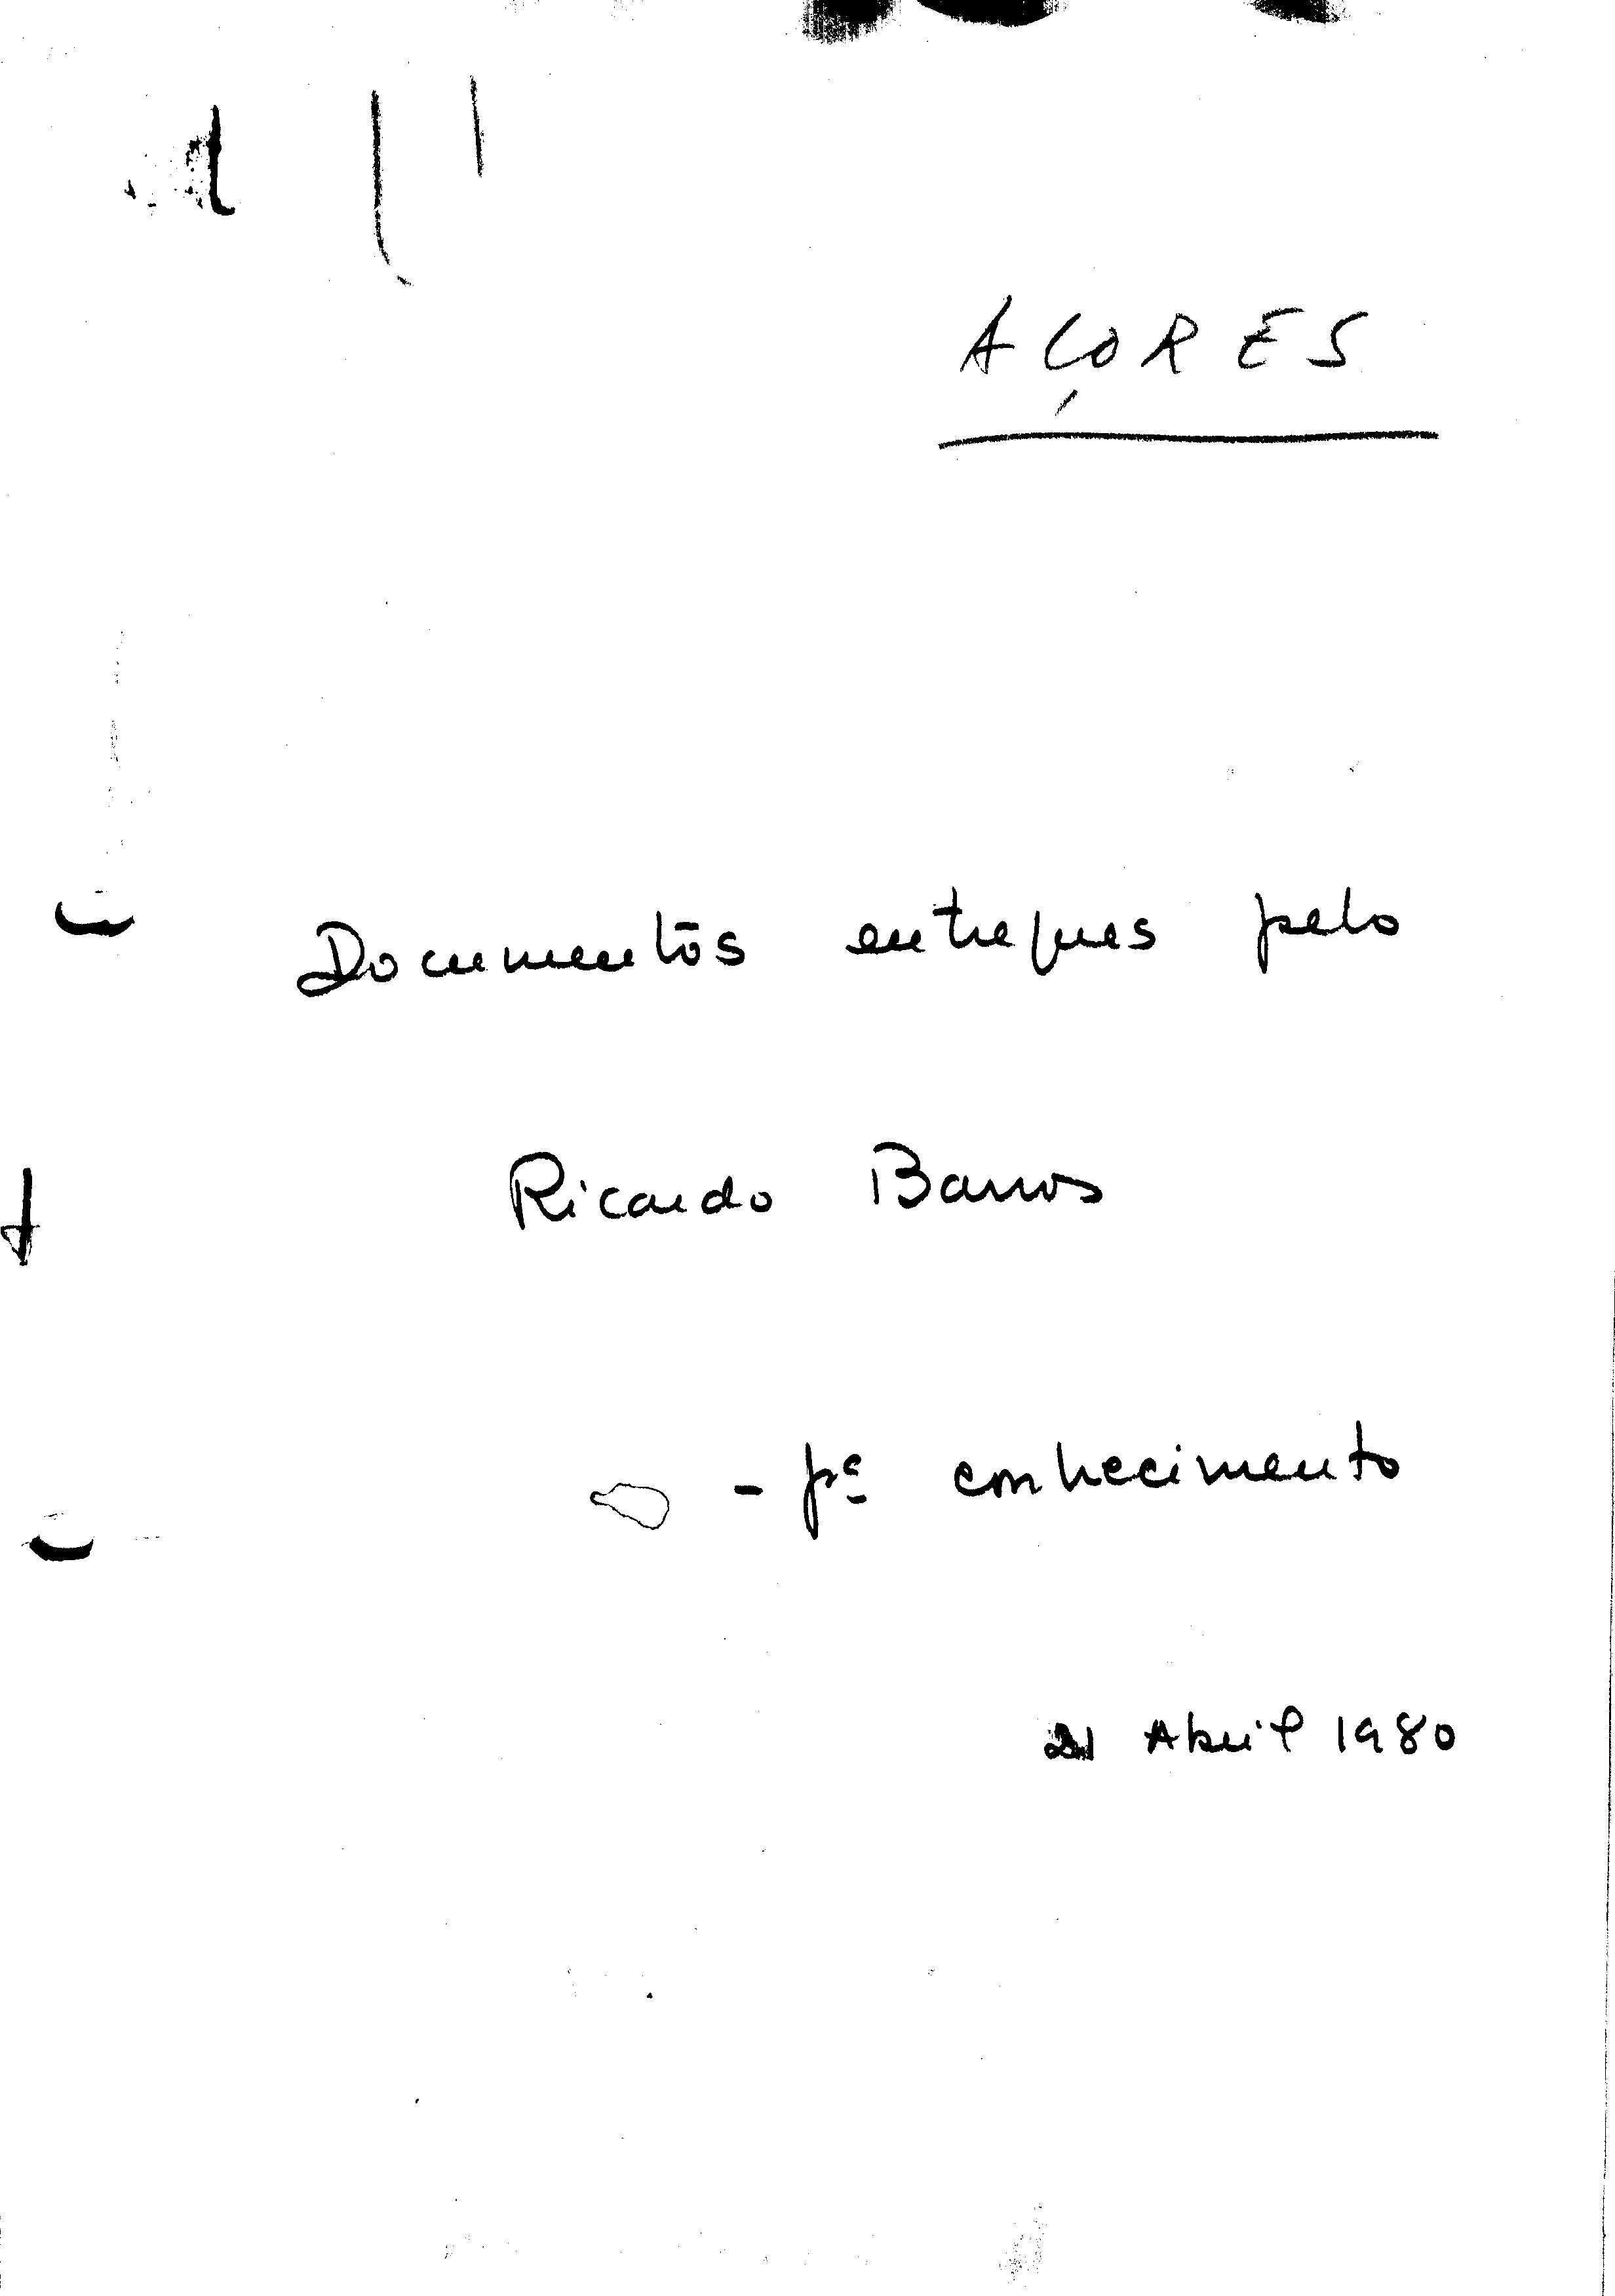 AÇORES
Documentos entregues pelo
Ricardo Barros
- pª conhecimento
21 Abril 1980